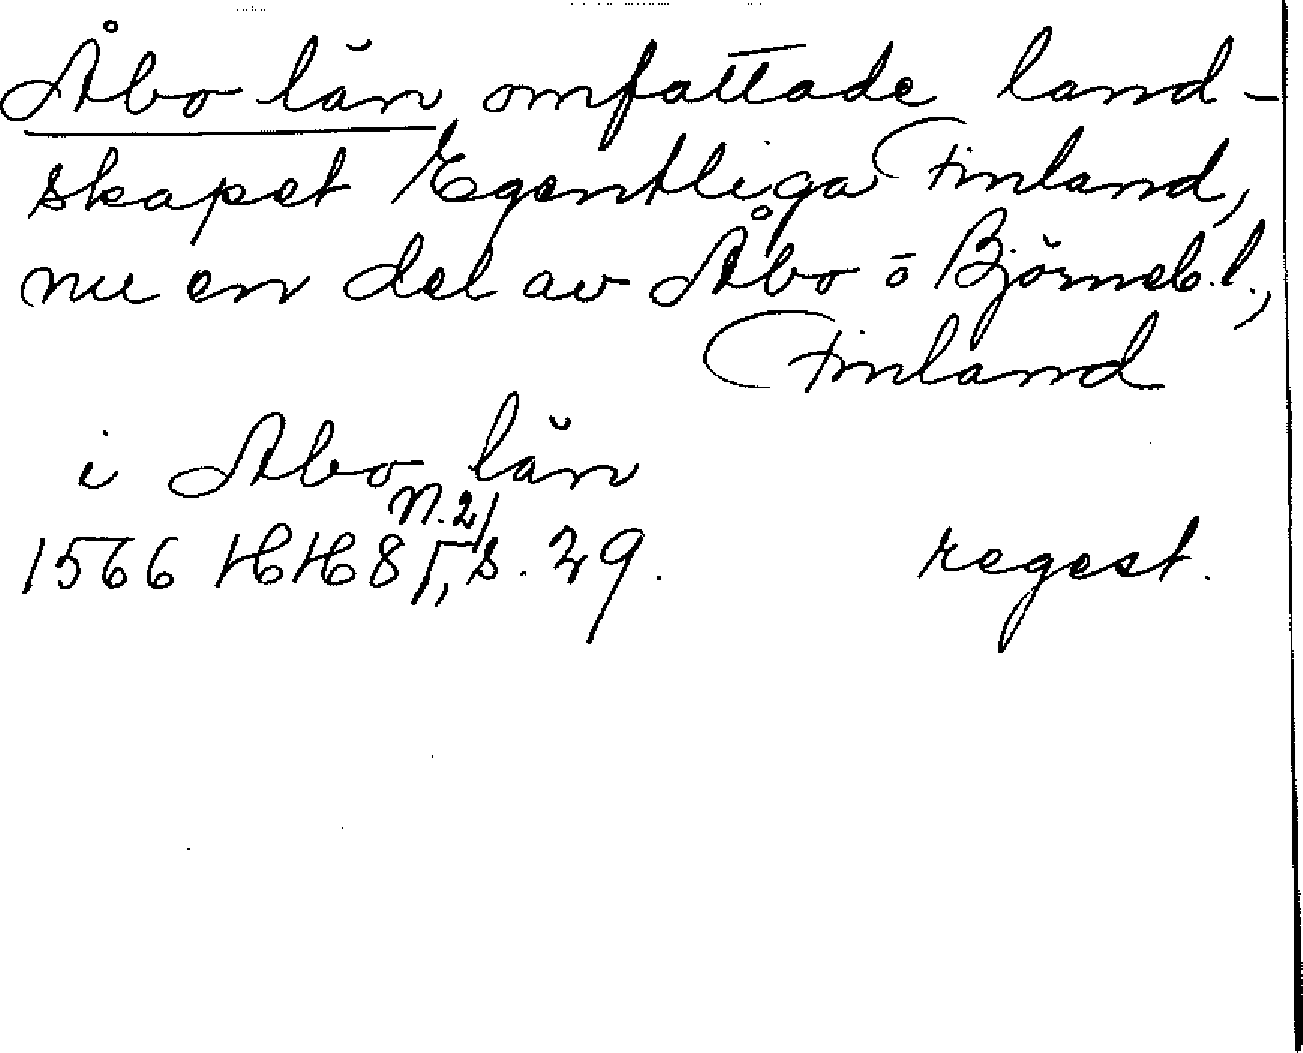 Åbo län omfattade land-
skapet Egentliga Finland,
nu en del av Åbo o Björneb.l.,
Finland
i Abo län
n. 2)
1566 HH 8, s. 29. regest.